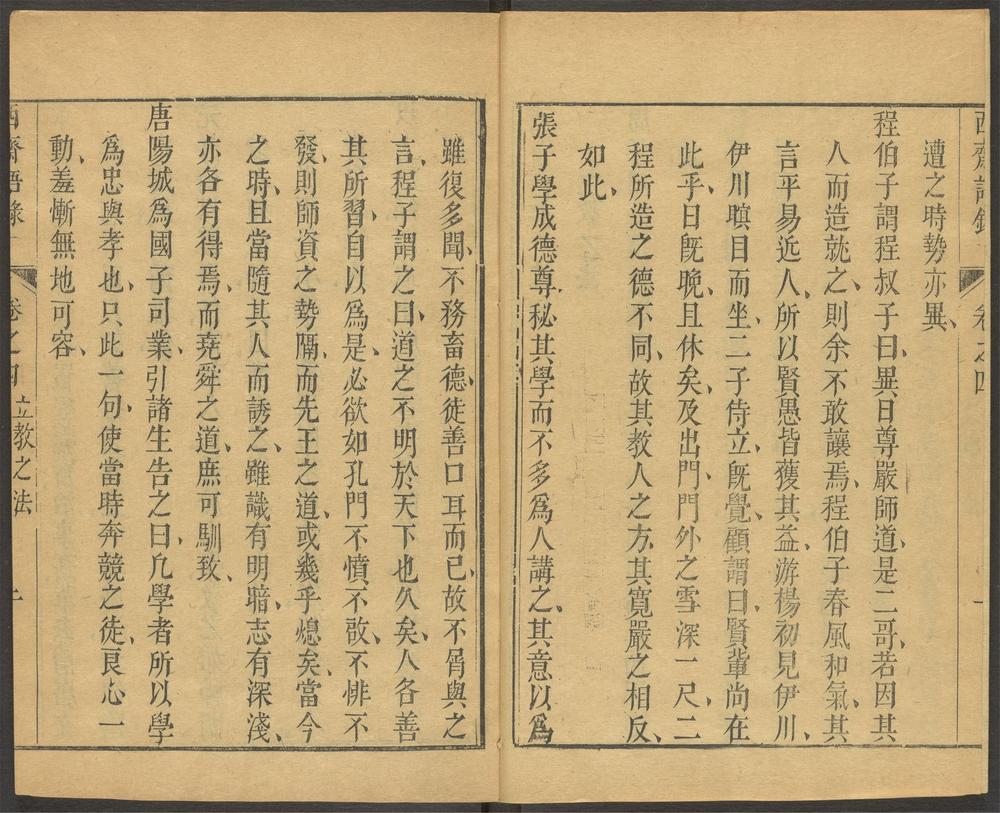 西齋語錄 卷之四
遭之時勢亦異、
程伯子謂程叔子曰、異日尊嚴師道、是二哥、若因其
人而造就之、則余不敢讓焉、程伯子春風和氣、其
言平易近人、所以賢愚皆獲其益、游楊初見伊川、
伊川瞑目而坐、二子侍立、旣覺、顧謂曰、賢輩尚在
此乎、日旣晚、且休矣、及出門、門外之雪深一尺、二
程所造之德不同、故其教人之方、其寬嚴之相反、
如此、
張子學成德尊、秘其學而不多爲人講之、其意以爲
雖復多聞、不務畜德、徒善口耳而已、故不屑與之
言、程子謂之曰、道之不明於天下也久矣、人各善
其所習、自以爲是、必欲如孔門不憤不啟、不悱不
發、則師資之勢隔、而先王之道、或幾乎熄矣、當今
之時、且當隨其人而誘之、雖識有明暗、志有深淺、
亦各有得焉、而堯舜之道、庶可馴致、
唐陽城爲國子司業、引諸生告之曰、凡學者所以學
爲忠與孝也、只此一句、使當時奔競之徒、良心一
動、羞慚無地可容、
西齋語錄 卷之四 立教之法